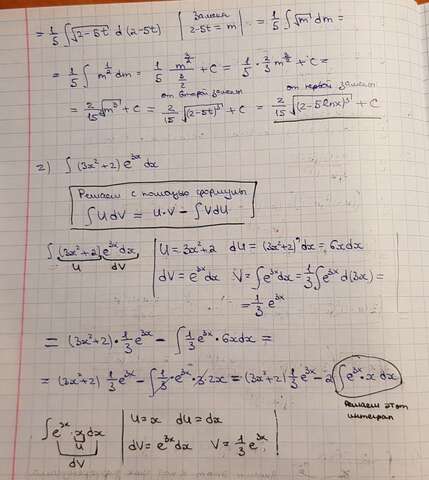 = 1/5 ∫ √(2-5t) d (2-5t) | Замена 2-5t = m | = 1/5 ∫ √m dm =
= 1/5 ∫ m^(1/2) dm = 1/5 m^(3/2)/(3/2) + C = 1/5 · 2/3 m^(3/2) + C =
от второй замены от первой замены
= 2/15 √m³ + C = 2/15 √(2-5t)³ + C = 2/15 √(2-5lnx)³ + C
2) ∫ (3x²+2) e^(3x) dx
Решаем с помощью формулы
∫ U dV = U·V - ∫ V dU
∫ (3x²+2) e^(3x) dx | U = 3x²+2 dU = (3x²+2)' dx = 6x dx
U dV | dV = e^(3x) dx V = ∫ e^(3x) dx = 1/3 ∫ e^(3x) d(3x) =
= 1/3 e^(3x)
= (3x²+2) · 1/3 e^(3x) - ∫ 1/3 e^(3x) · 6x dx =
= (3x²+2) 1/3 e^(3x) - ∫ 1/3 · e^(3x) · 3 · 2x = (3x²+2) 1/3 e^(3x) - 2 ∫ e^(3x) · x dx
Решаем этот
интеграл
∫ e^(3x) · x dx | U = x dU = dx
U
dV | dV = e^(3x) dx V = 1/3 e^(3x)